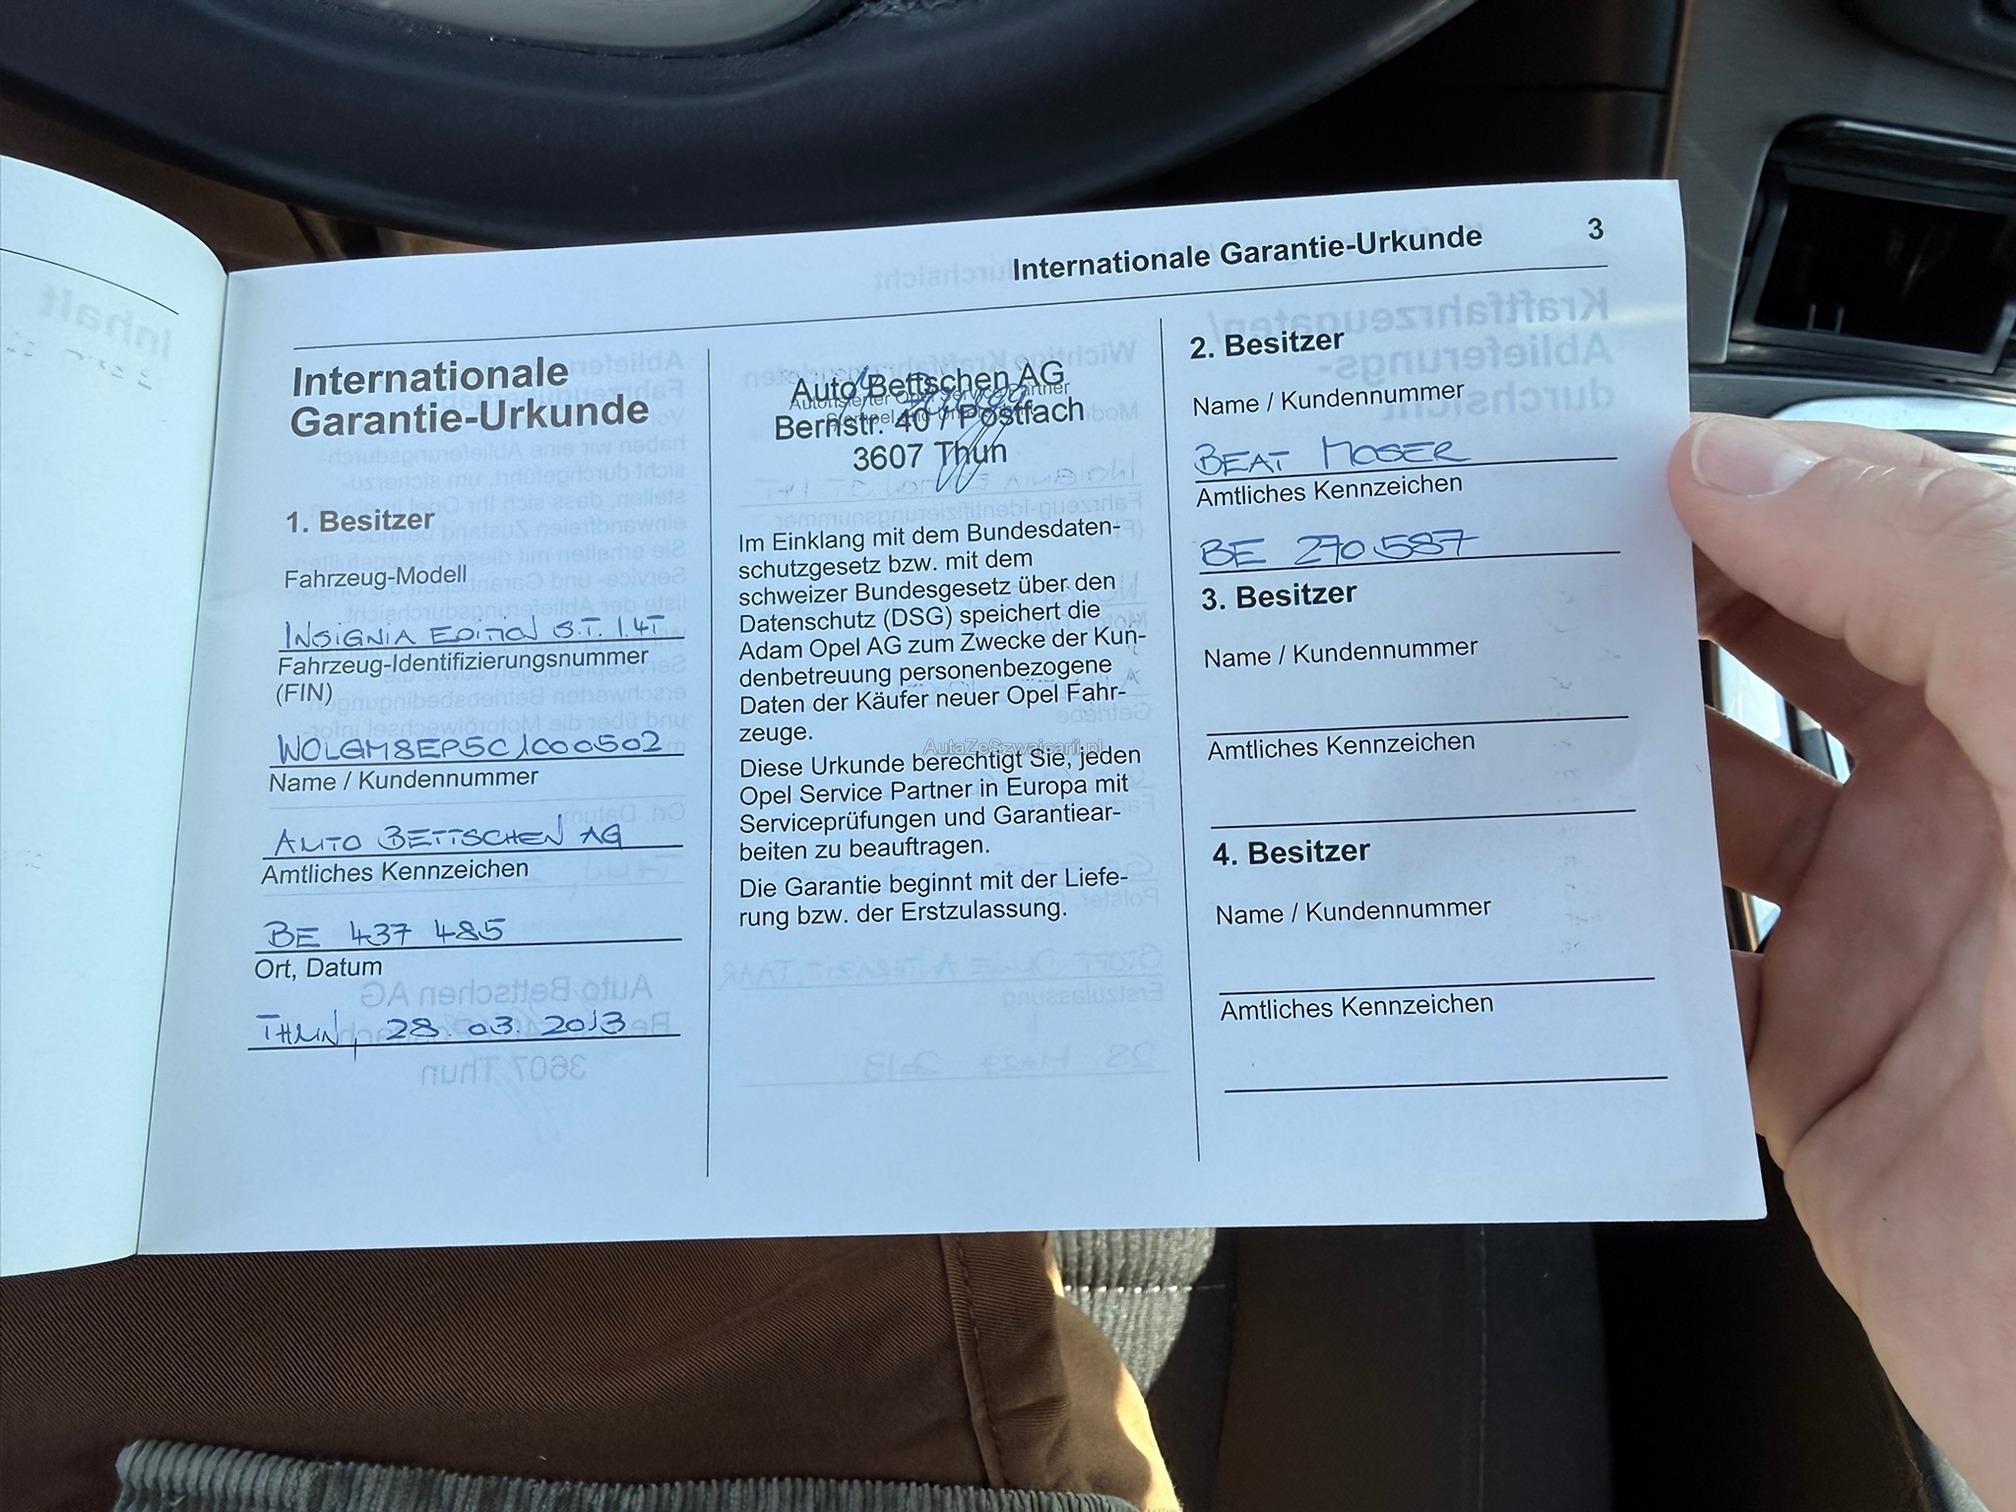 Internationale Garantie-Urkunde 3
Internationale
Garantie-Urkunde
1. Besitzer
Fahrzeug-Modell
INSIGNIA EDITION S.T. 1.4T
Fahrzeug-Identifizierungsnummer
(FIN)
WOLGM8EP5C1000502
Name / Kundennummer
AUTO BETTSCHEN AG
Amtliches Kennzeichen
BE 437 485
Ort, Datum
THUN, 28.03.2013
Auto Bettschen AG
Autorisierter Opel Service Partner
Bernstr. 40 / Postfach
3607 Thun
Im Einklang mit dem Bundesdaten-
schutzgesetz bzw. mit dem
schweizer Bundesgesetz über den
Datenschutz (DSG) speichert die
Adam Opel AG zum Zwecke der Kun-
denbetreuung personenbezogene
Daten der Käufer neuer Opel Fahr-
zeuge.
AutaZeSzwajcarii.pl
Diese Urkunde berechtigt Sie, jeden
Opel Service Partner in Europa mit
Serviceprüfungen und Garantiear-
beiten zu beauftragen.
Die Garantie beginnt mit der Liefe-
rung bzw. der Erstzulassung.
2. Besitzer
Name / Kundennummer
BEAT MOSER
Amtliches Kennzeichen
BE 270.587
3. Besitzer
Name / Kundennummer
Amtliches Kennzeichen
4. Besitzer
Name / Kundennummer
Amtliches Kennzeichen